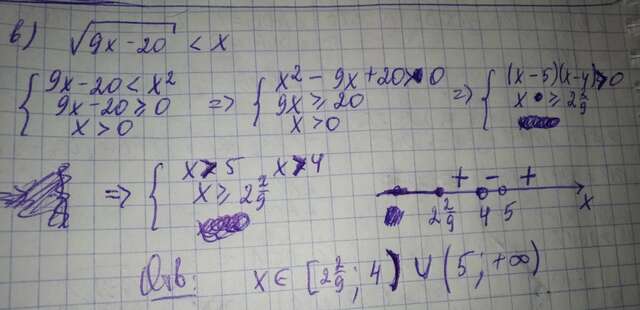 в) √9x-20 < x
{ 9x-20 < x² => { x² - 9x + 20 > 0 => { (x-5)(x-4) > 0
9x-20 ≥ 0 9x ≥ 20 x ≥ 2 2/9
x > 0 x > 0
=> { x > 5 x > 4
x ≥ 2 2/9
+ - +
2 2/9 4 5 x
Отв: x ∈ [2 2/9; 4) ∪ (5; +∞)